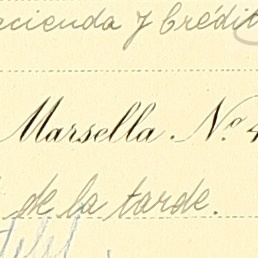 acienda y Crédit
Marsella. N.º 4
de la tarde.